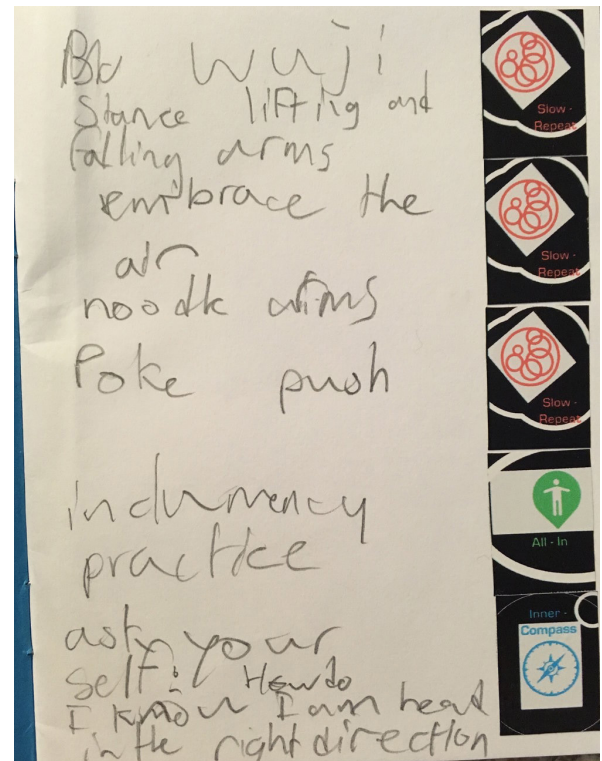 wuji
Stance lifting and
falling arms
embrace the
air
noodle arms
Poke push
practice
ask your
self: How do
I know I am head
in the right direction
Slow -
Repeat
Slow -
Repeat
Slow -
Repeat
All - In
Inner -
Compass